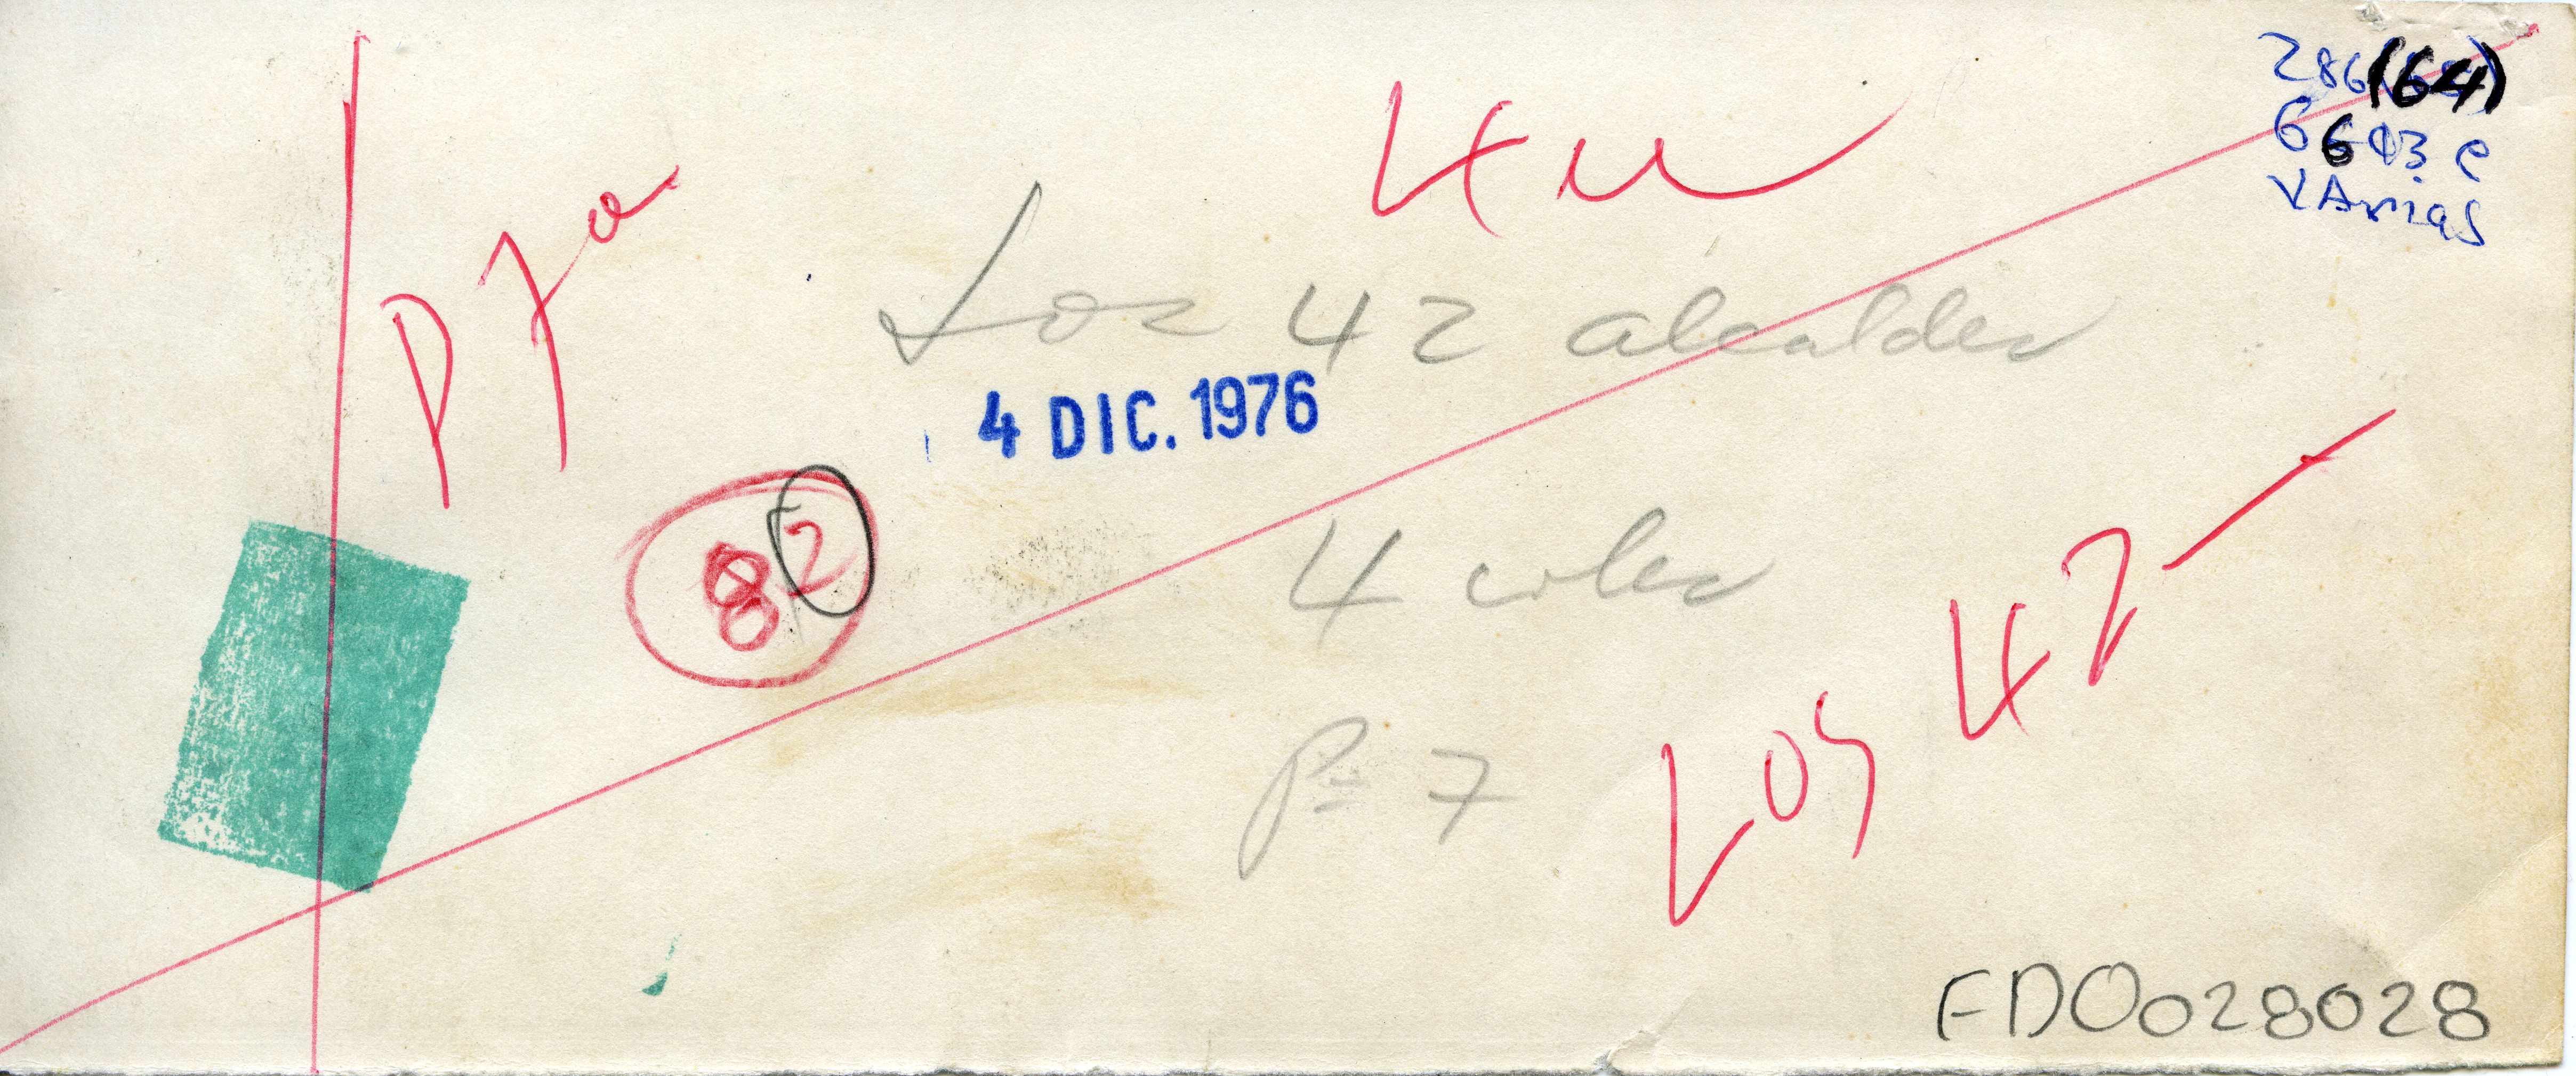 286 (64)
6613 e
VArias
4
P 7a
Los 42 alcaldes
4 DIC. 1976
82
4 coles
Los 42
P= 7
FDO028028